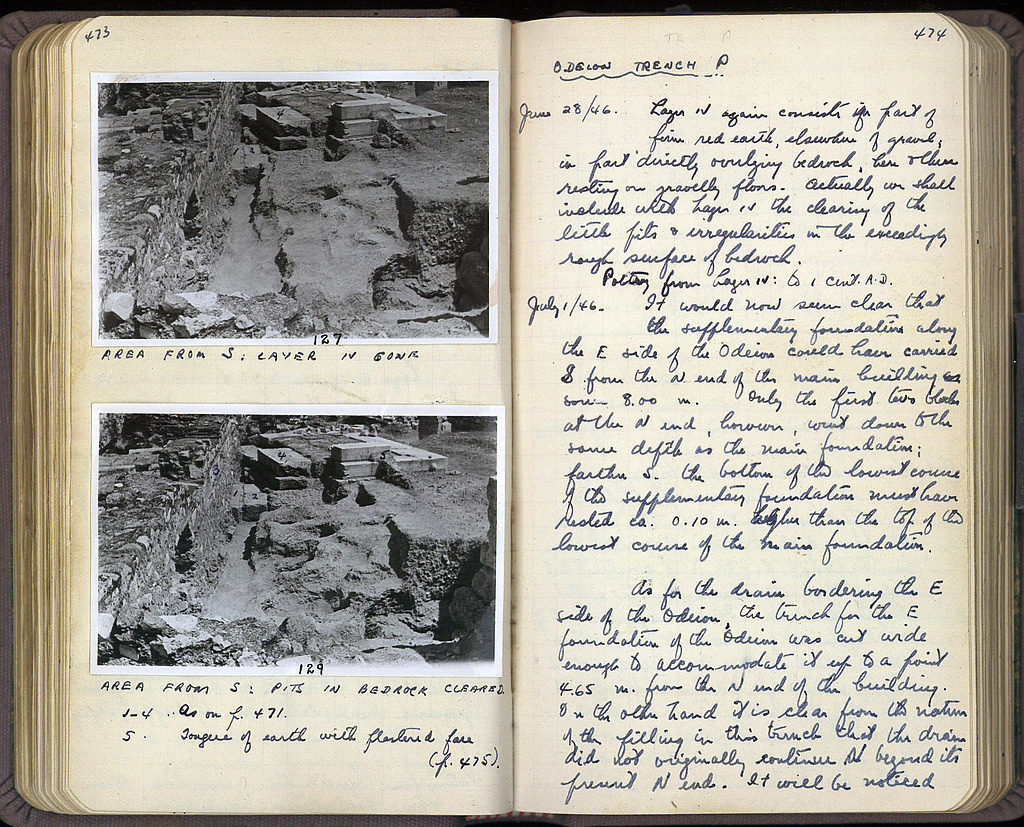 473
127
AREA FROM S: LAYER IV GONE
129
AREA FROM S: PITS IN BEDROCK CLEARED
1-4 . As on p. 471.
5. Tongue of earth with plastered face
(p. 475).
474
ODEION TRENCH P
June 28/46. Layer IV again consists in part of
firm red earth, elsewhere of gravel;
in part directly overlying bedrock, here & there
resting on gravelly floors. Actually we shall
include with Layer IV the clearing of the
little pits & irregularities in the exceedingly
rough surface of bedrock.
Pottery from Layer IV: to 1 cent. A.D.
July 1/46. It would now seem clear that
the supplementary foundation along
the E side of the Odeion could have carried
S from the N end of the main building
some 8.00 m. Only the first two blocks
at the N end, however, went down to the
same depth as the main foundation;
farther S. the bottom of the lowest course
of the supplementary foundation must have
rested ca. 0.10 m. higher than the top of the
lowest course of the main foundation.
As for the drain bordering the E
side of the Odeion, the trench for the E
foundation of the Odeion was cut wide
enough to accommodate it up to a point
4.65 m. from the N end of the building.
On the other hand it is clear from the nature
of the filling in this trench that the drain
did not originally continue N beyond its
present N end. It will be noticed